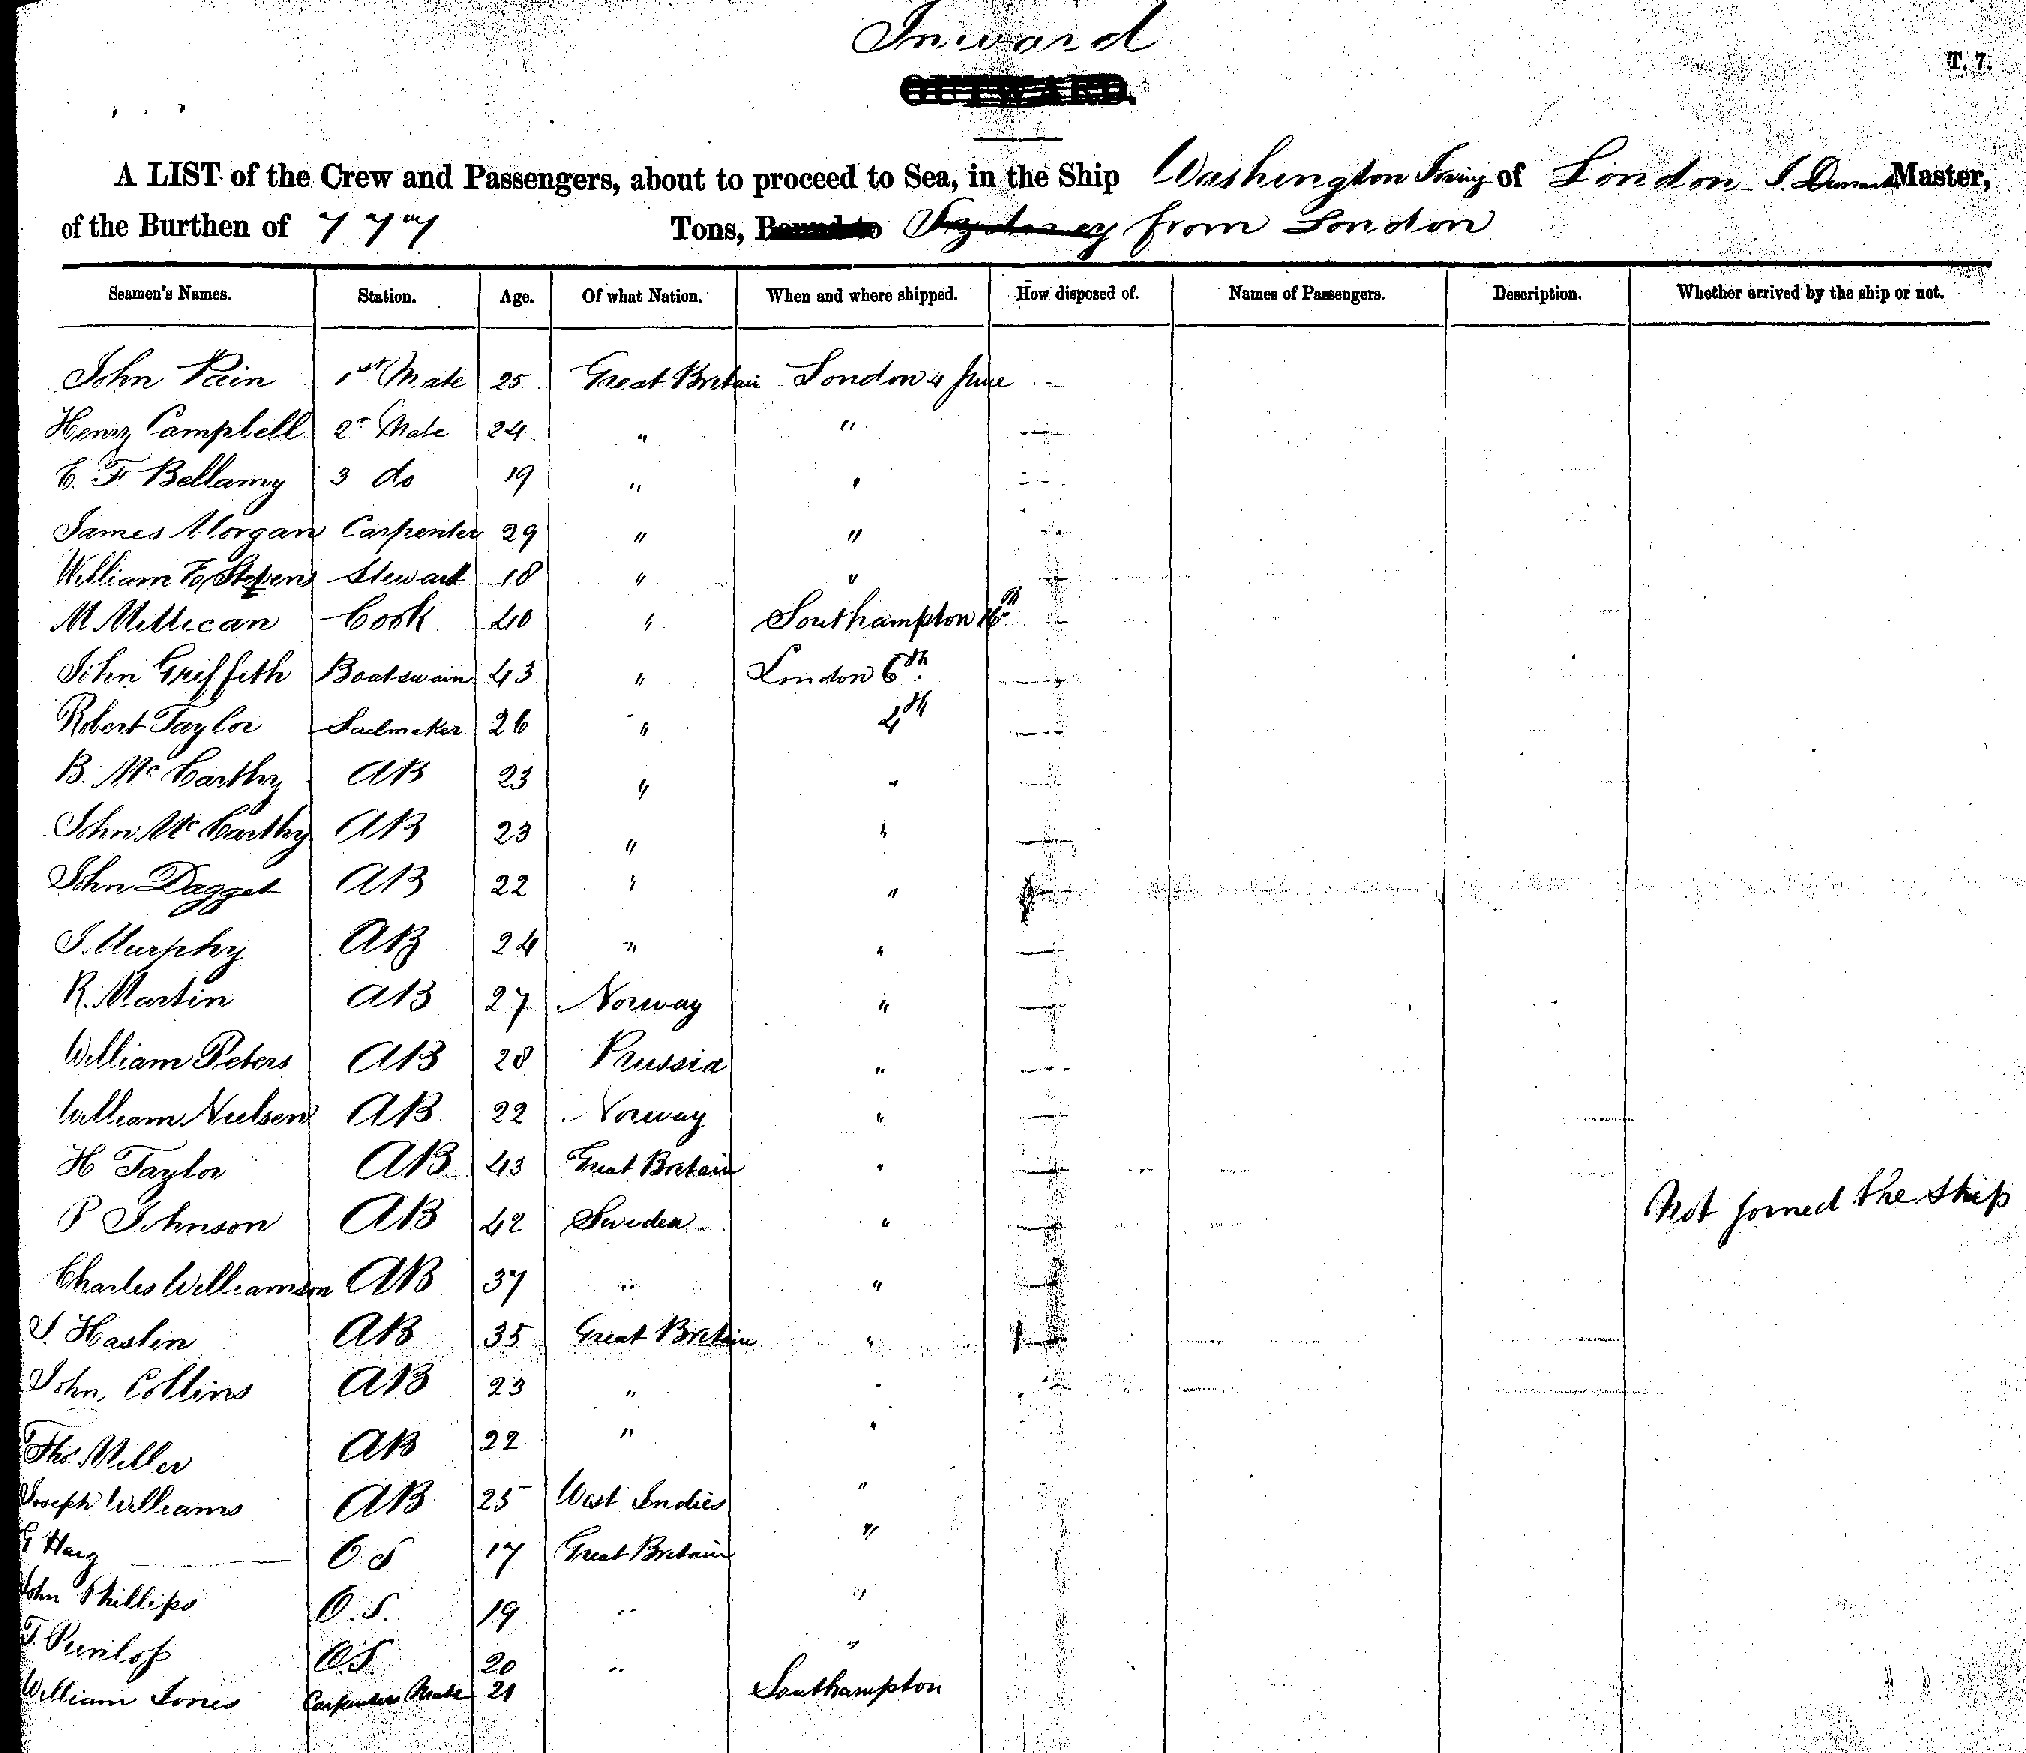 Inward
OUTWARD.
T. 7.
A LIST of the Crew and Passengers, about to proceed to Sea, in the Ship Washington Irving of London J. Master,
of the Burthen of 777 Tons, Bound to Sydney from London
Seamen's Names. Station. Age. Of what Nation. When and where shipped. How disposed of. Names of Passengers. Description. Whether arrived by the ship or not.
John Pain 1st Mate 25 Great Britain London 4 June
Henry Campbell 2d Mate 24 " "
E. F Bellamy 3 do 19 " "
James Morgan Carpenter 29 " "
William F Stevens Steward 18 " "
M Millican Cook 40 " Southampton 16th
John Griffith Boatswain 43 " London 6th
Robert Taylor Sailmaker 26 " 4th
B. McCarthy AB 23 " "
John McCarthy AB 23 " "
John Dagget AB 22 " "
J. Murphy AB 24 " "
R. Martin AB 27 Norway "
William Peters AB 28 Prussia "
William Nielsen AB 22 Norway "
H Taylor AB 43 Great Britain "
P Johnson AB 42 Sweden " Not joined the ship
Charles Williamson AB 37 " "
J. Haslin AB 35 Great Britain "
John Collins AB 23 " "
Thos Miller AB 22 " "
Joseph Williams AB 25 West Indies "
G Harg O.S 17 Great Britain "
John Phillips O.S. 19 " "
T. Dunlop OS 20 " "
William Jones Carpenters Mate 21 Southampton